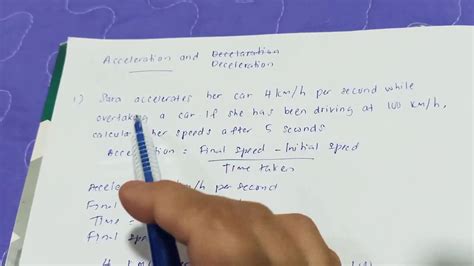 Acceleration and Decelaration
Deceleration
1) Sara accelerates her car 4 km/h per second while
overtaking a car if she has been driving at 100 km/h,
calculate her speeds after 5 seconds
Acceleration = Final speed - Initial speed
Time taken
km/h per second
Final
Time =
Final
4